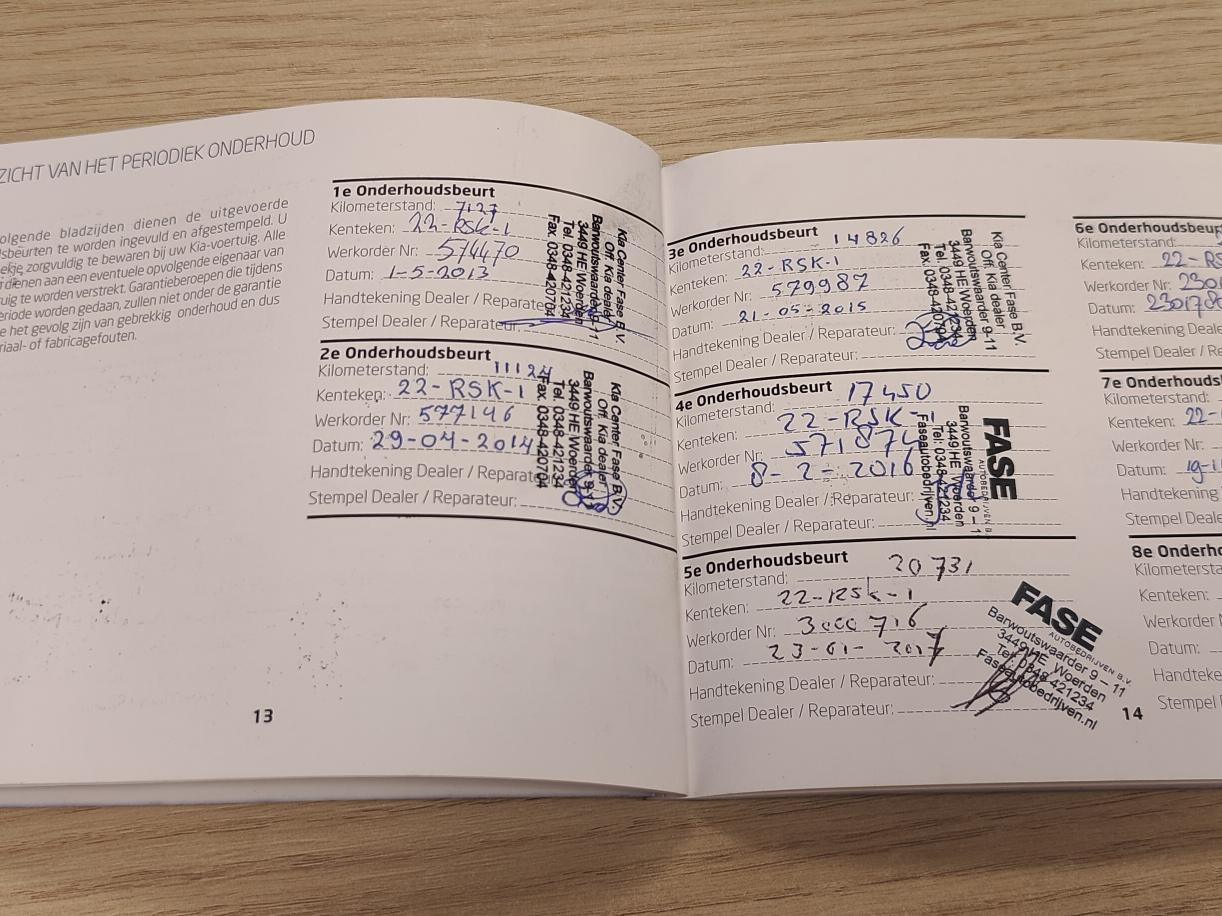 ZICHT VAN HET PERIODIEK ONDERHOUD
olgende bladzijden dienen de uitgevoerde
sbeurten te worden ingevuld en afgestempeld. U
ekje zorgvuldig te bewaren bij uw Kia-voertuig. Alle
dienen aan een eventuele opvolgende eigenaar van
uig te worden verstrekt. Garantieberoepen die tijdens
eriode worden gedaan, zullen niet onder de garantie
e het gevolg zijn van gebrekkig onderhoud en dus
riaal- of fabricagefouten.
13
1e Onderhoudsbeurt
Kilometerstand: 7127
Kenteken: 22-RSK-1
Werkorder Nr: 574470
Datum: 1-5-2013
Handtekening Dealer / Reparate
Stempel Dealer / Reparateur:
Kia Center Fase B.V.
Off. Kia dealer
Barwoutswaarder 9-11
3449 HE Woerden
Tel. 0348-421234
Fax. 0348-420704
2e Onderhoudsbeurt
Kilometerstand: 11124
Kenteken: 22-RSK-1
Werkorder Nr: 577146
Datum: 29-04-2014
Handtekening Dealer / Reparate
Stempel Dealer / Reparateur:
Kia Center Fase B.V.
Off. Kia dealer
Barwoutswaarder 9-11
3449 HE Woerden
Tel. 0348-421234
Fax. 0348-420704
3e Onderhoudsbeurt
Kilometerstand: 14826
Kenteken: 22-RSK-1
Werkorder Nr: 579987
Datum: 21-05-2015
Handtekening Dealer / Reparateur:
Stempel Dealer / Reparateur:
Kia Center Fase B.V.
Off. Kia dealer
Barwoutswaarder 9-11
3449 HE Woerden
Tel. 0348-421234
Fax. 0348-420704
4e Onderhoudsbeurt
Kilometerstand: 17450
Kenteken: 22-RSK-1
Werkorder Nr: 571874
Datum: 8-2-2016
Handtekening Dealer / Reparateur:
Stempel Dealer / Reparateur:
FASE
AUTOBEDRIJVEN B.
Barwoutswaarder 9 – 1
3449 HE Woerden
Tel: 0348-421234
Faseautobedrijven.nl
5e Onderhoudsbeurt
Kilometerstand: 20731
Kenteken: 22-RSK-1
Werkorder Nr: 3000716
Datum: 23-01-2017
Handtekening Dealer / Reparateur:
Stempel Dealer / Reparateur:
FASE
AUTOBEDRIJVEN B.V.
Barwoutswaarder 9 – 11
3449 HE Woerden
Tel. 0348-421234
Faseautobedrijven.nl
14
6e Onderhoudsbeur
Kilometerstand:
Kenteken: 22-RS
Werkorder Nr: 230
Datum: 230178
Handtekening Deale
Stempel Dealer / Re
7e Onderhouds
Kilometerstand:
Kenteken: 22-
Werkorder Nr:
Datum: 19-1
Handtekening
Stempel Deale
8e Onderho
Kilometersta
Kenteken:
Werkorder N
Datum:
Handteke
Stempel